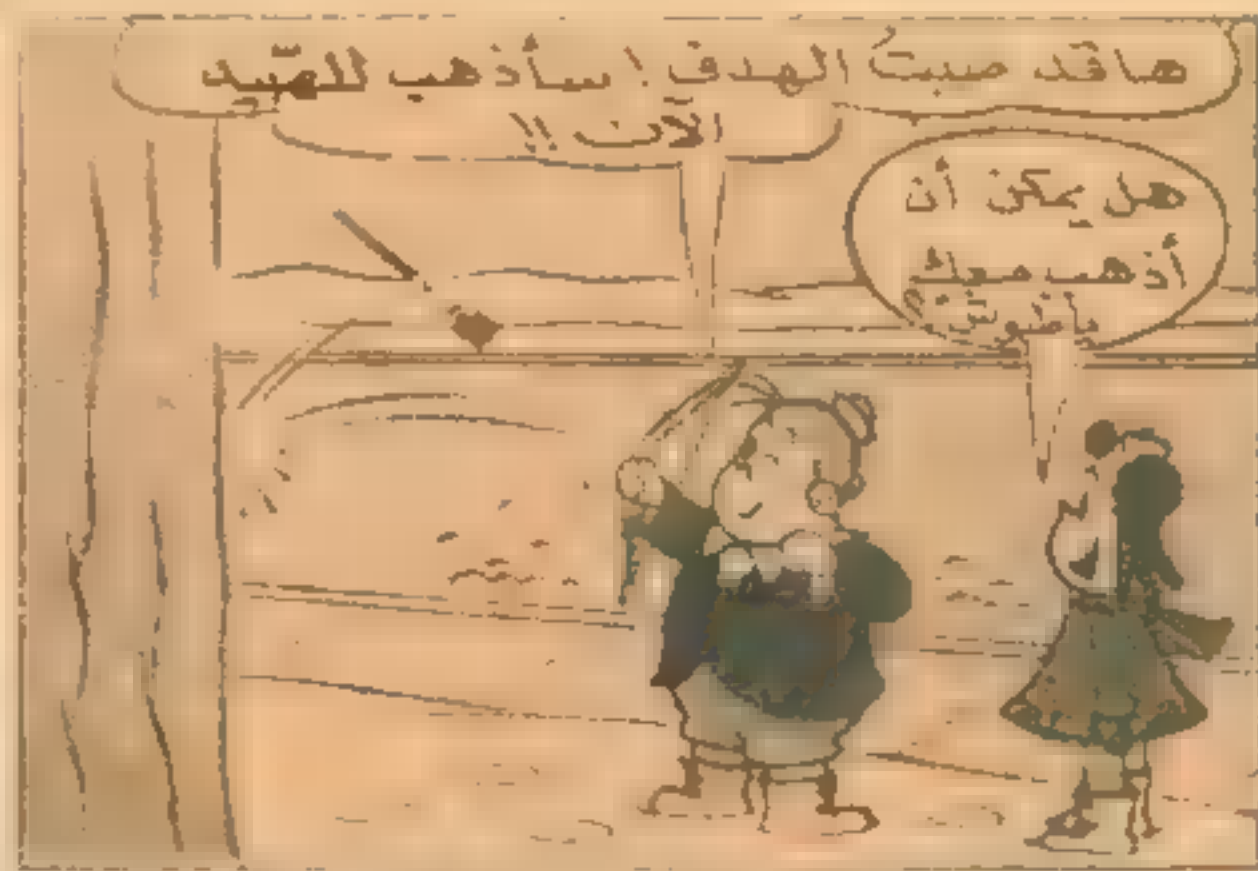 ها قد صبتُ الهدف! سأذهب للصّيد
الآن!!
هل يمكن أن
أذهب معك